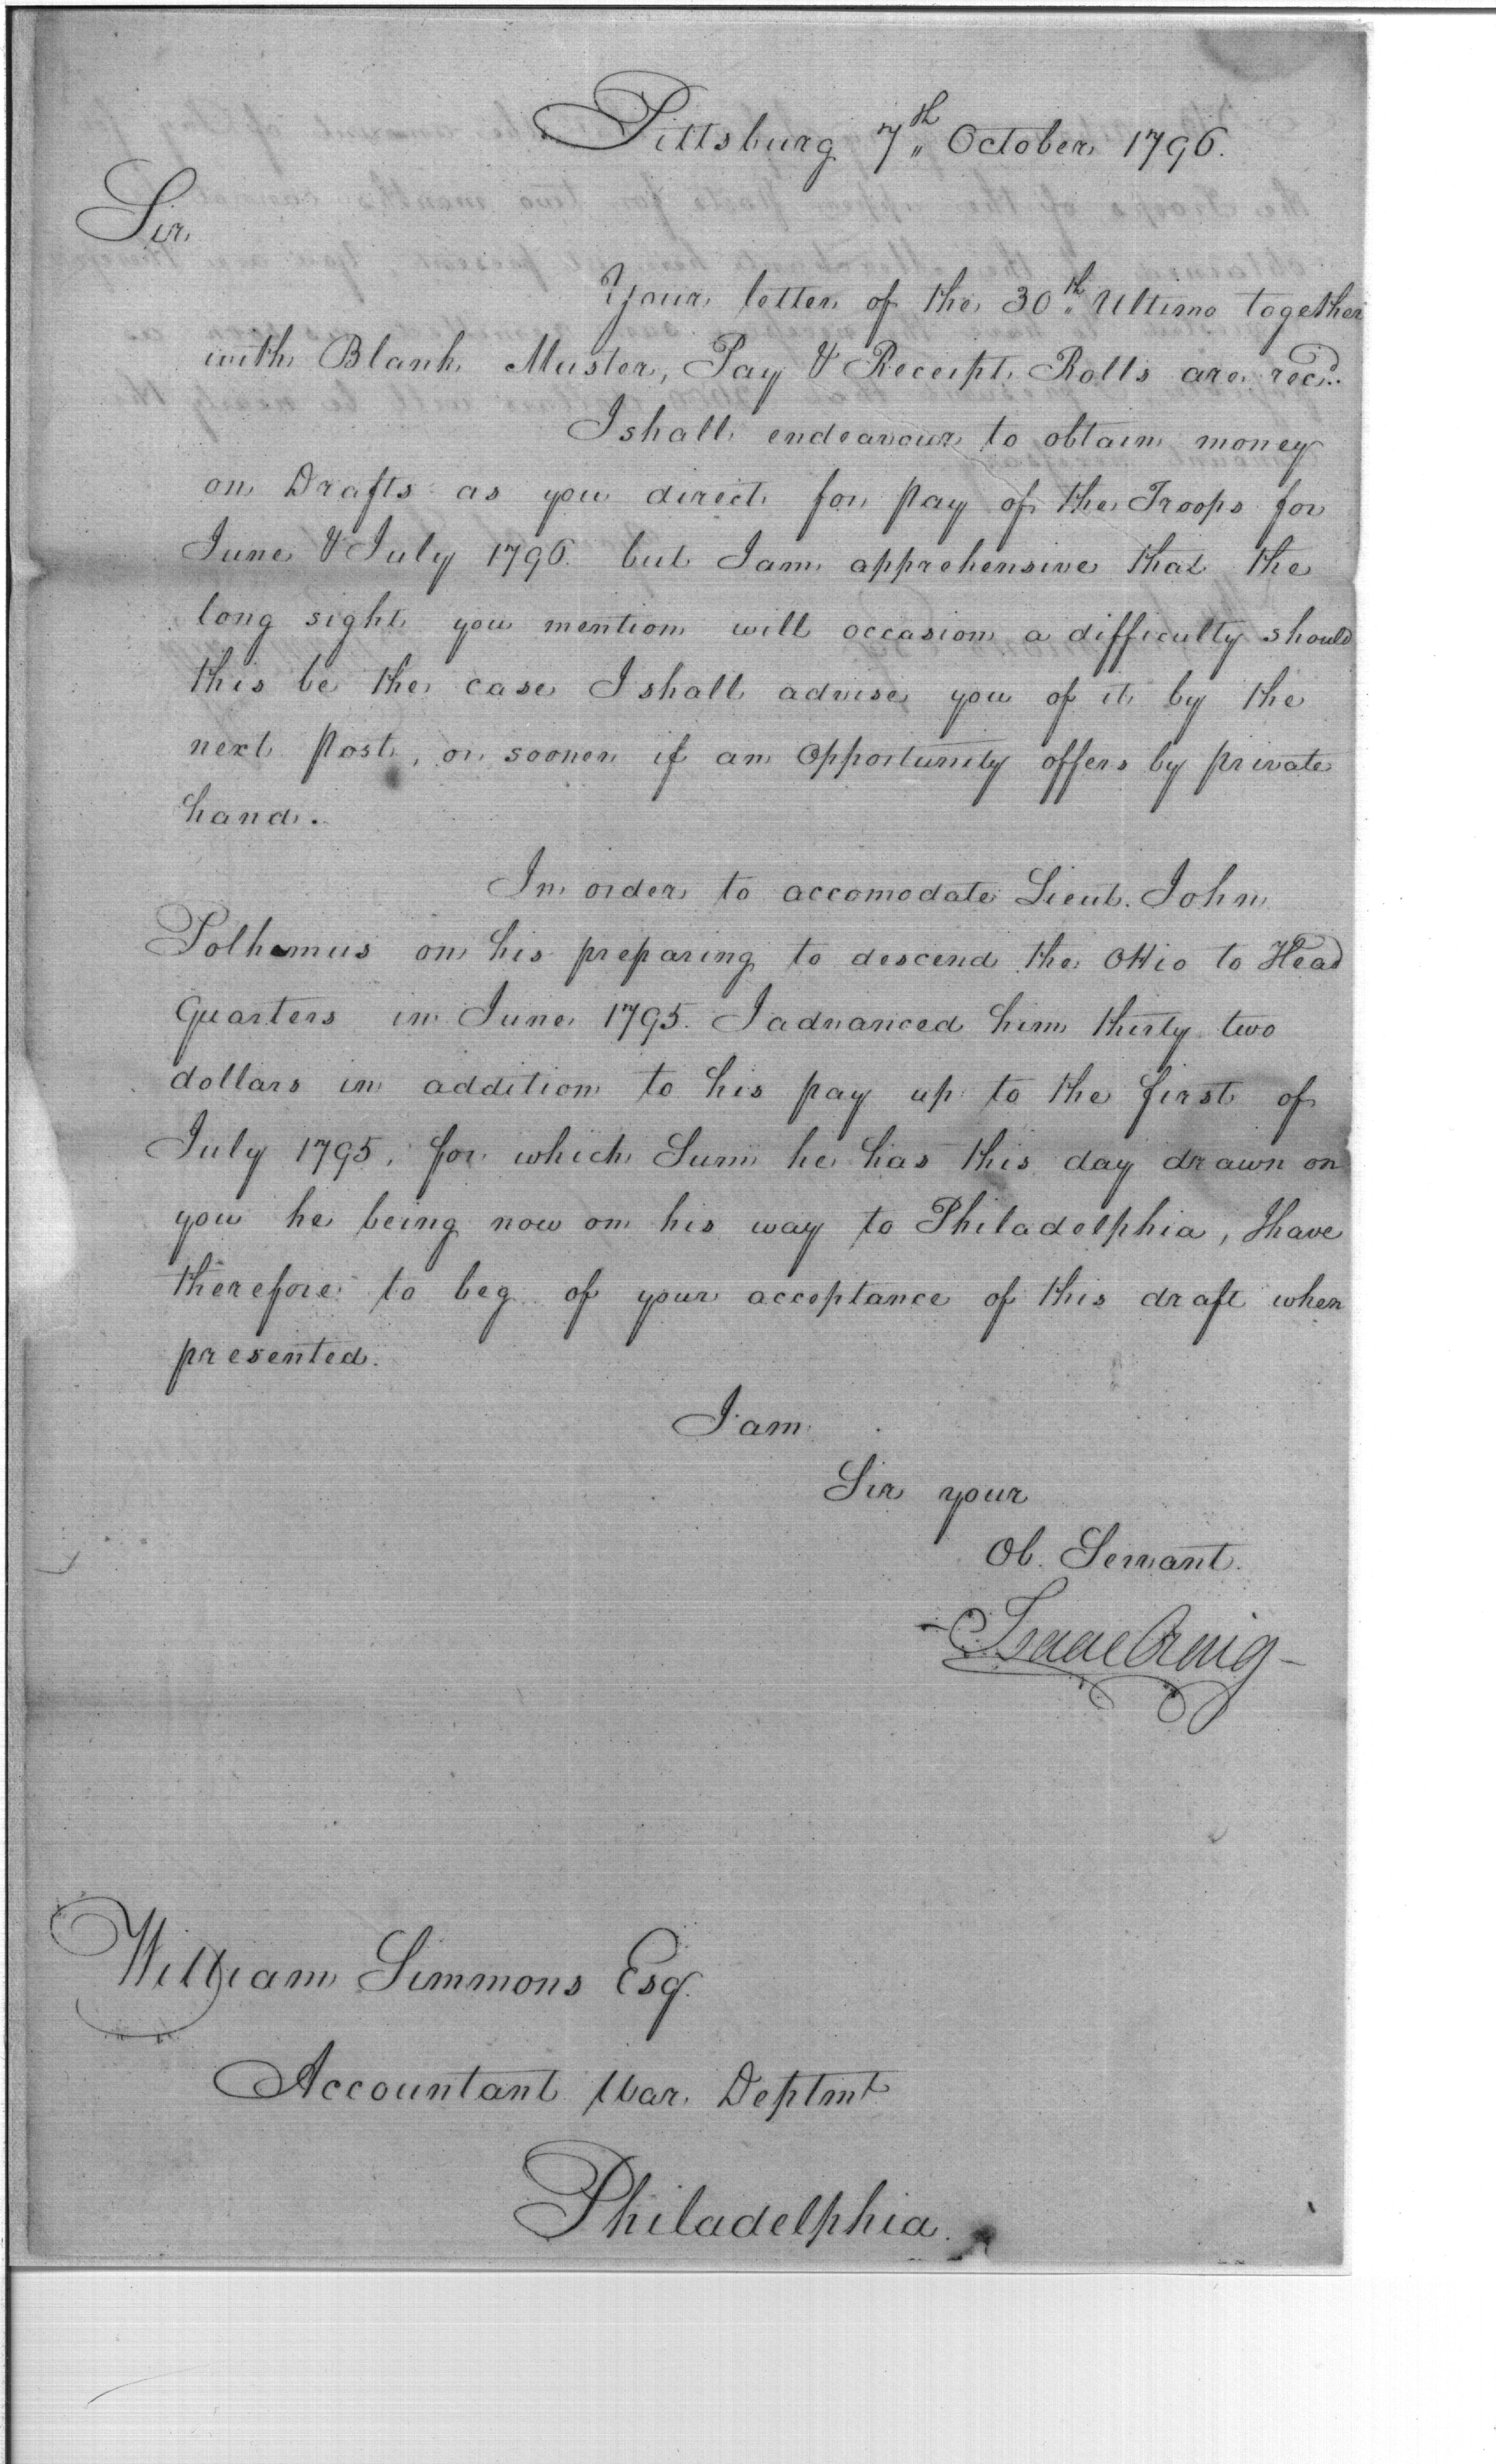 Pittsburg 7th October 1796.
Sir
Your letter of the 30th Ultimo together
with Blank Muster, Pay & Receipt Rolls are recd.
I shall endeavour to obtain money
on Drafts as you direct for pay of the Troops for
June & July 1796. but I am apprehensive that the
long sight you mention will occasion a difficulty should
this be the case I shall advise you of it by the
next post, or sooner if an Opportunity offers by private
hand.
In order to accomodate Lieut. John
Polhemus on his preparing to descend the Ohio to Head
Quarters in June 1795. I advanced him thirty two
dollars in addition to his pay up to the first of
July 1795, for which Sum he has this day drawn on
you he being now on his way to Philadelphia, I have
therefore to beg of your acceptance of this draft when
presented.
I am
Sir your
Ob. Servant.
Isaac Craig
William Simmons Esq.
Accountant War Deptmt
Philadelphia.